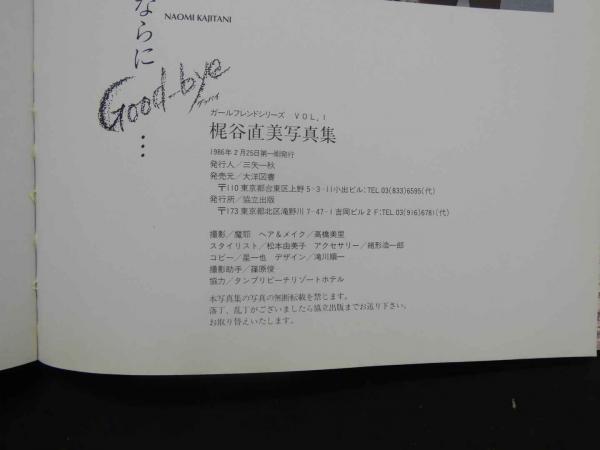 ならに
Good-bye
グッバイ
…
NAOMI KAJITANI
ガールフレンドシリーズ VOL,1
梶谷直美写真集
1986年2月25日第一刷発行
発行人／三矢一秋
発売元／大洋図書
〒110 東京都台東区上野5-3-11小出ビル：TEL03(833)6595(代)
発行所／協立出版
〒173 東京都北区滝野川7-47-1吉岡ビル2F：TEL03(916)6781(代)
撮影／魔耶 ヘア＆メイク／高橋美里
スタイリスト／松本由美子 アクセサリー／緒形浩一郎
コピー／星一也 デザイン／滝川順一
撮影助手／篠原俊
協力／タンブリビーチリゾートホテル
本写真集の写真の無断転載を禁じます。
落丁、乱丁がございましたら協立出版までお送り下さい。
お取り替えいたします。